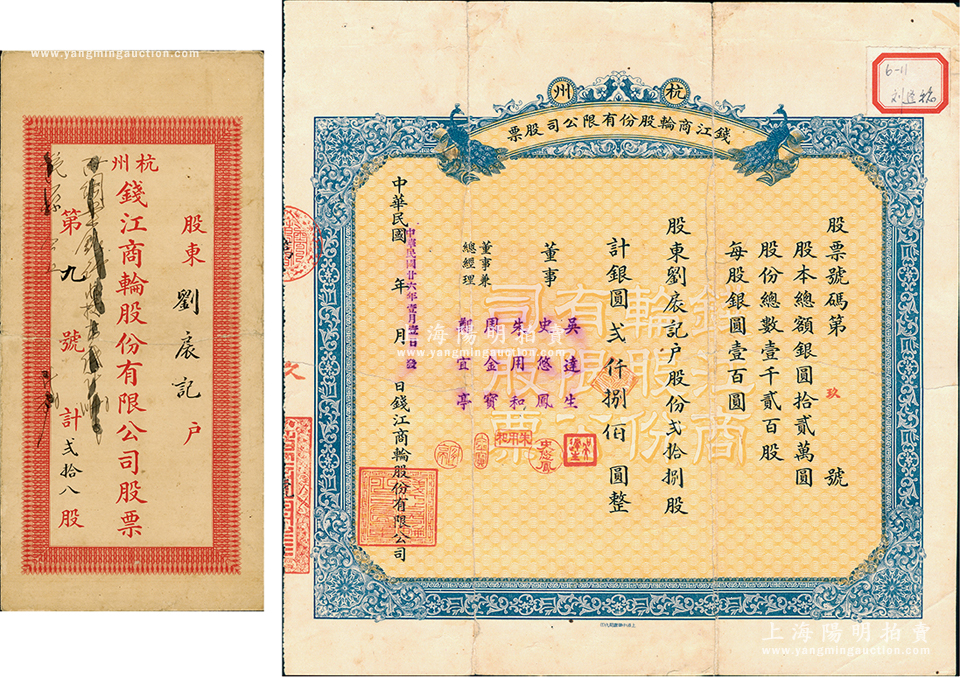 www.yangmingauction.com
杭州
錢江商輪股份有限公司股票
股東 劉扆記 户
第九號 計弍拾八股
6-11
杭州
錢江商輪股份有限公司股票
股票號碼第 玖 號
股本總額銀圓拾貳萬圓
股份總數壹千貳百股
每股銀圓壹百圓
股東劉扆記户股份弍拾捌股
計銀圓弍仟捌佰圓整
董事
吳達生
史悠鳳
朱用和
周金寶
董事兼總經理
鄭宜亭
中華民國 年 月 日錢江商輪股份有限公司
中華民國廿六年壹月壹日
錢江商輪股份有限公司股票
朱用和
史悠鳳
海陽明拍賣
www.yangmingauction.com
上海陽明拍賣
www.yangmingauction.com